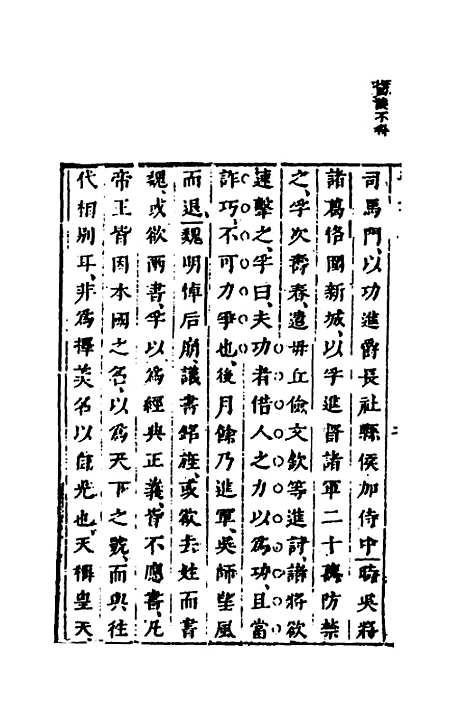 司馬門、以功進爵長社縣侯加侍中、時吳將
諸葛恪圍新城、以孚進督諸軍二十萬防禁
之、孚次壽春、遣毋丘儉文欽等進討、諸將欲
速擊之、孚曰、夫功者借人之力以爲功、且當
詐巧、不可力爭也、後月餘乃進軍、吳師望風
而退、魏明悼后崩、議書銘旌、或欲去姓而書
魏、或欲兩書、孚以爲經典正義、皆不應書、凡
帝王皆因本國之名、以爲天下之號、而與往
代相別耳、非爲擇美名以自光也、天稱皇天